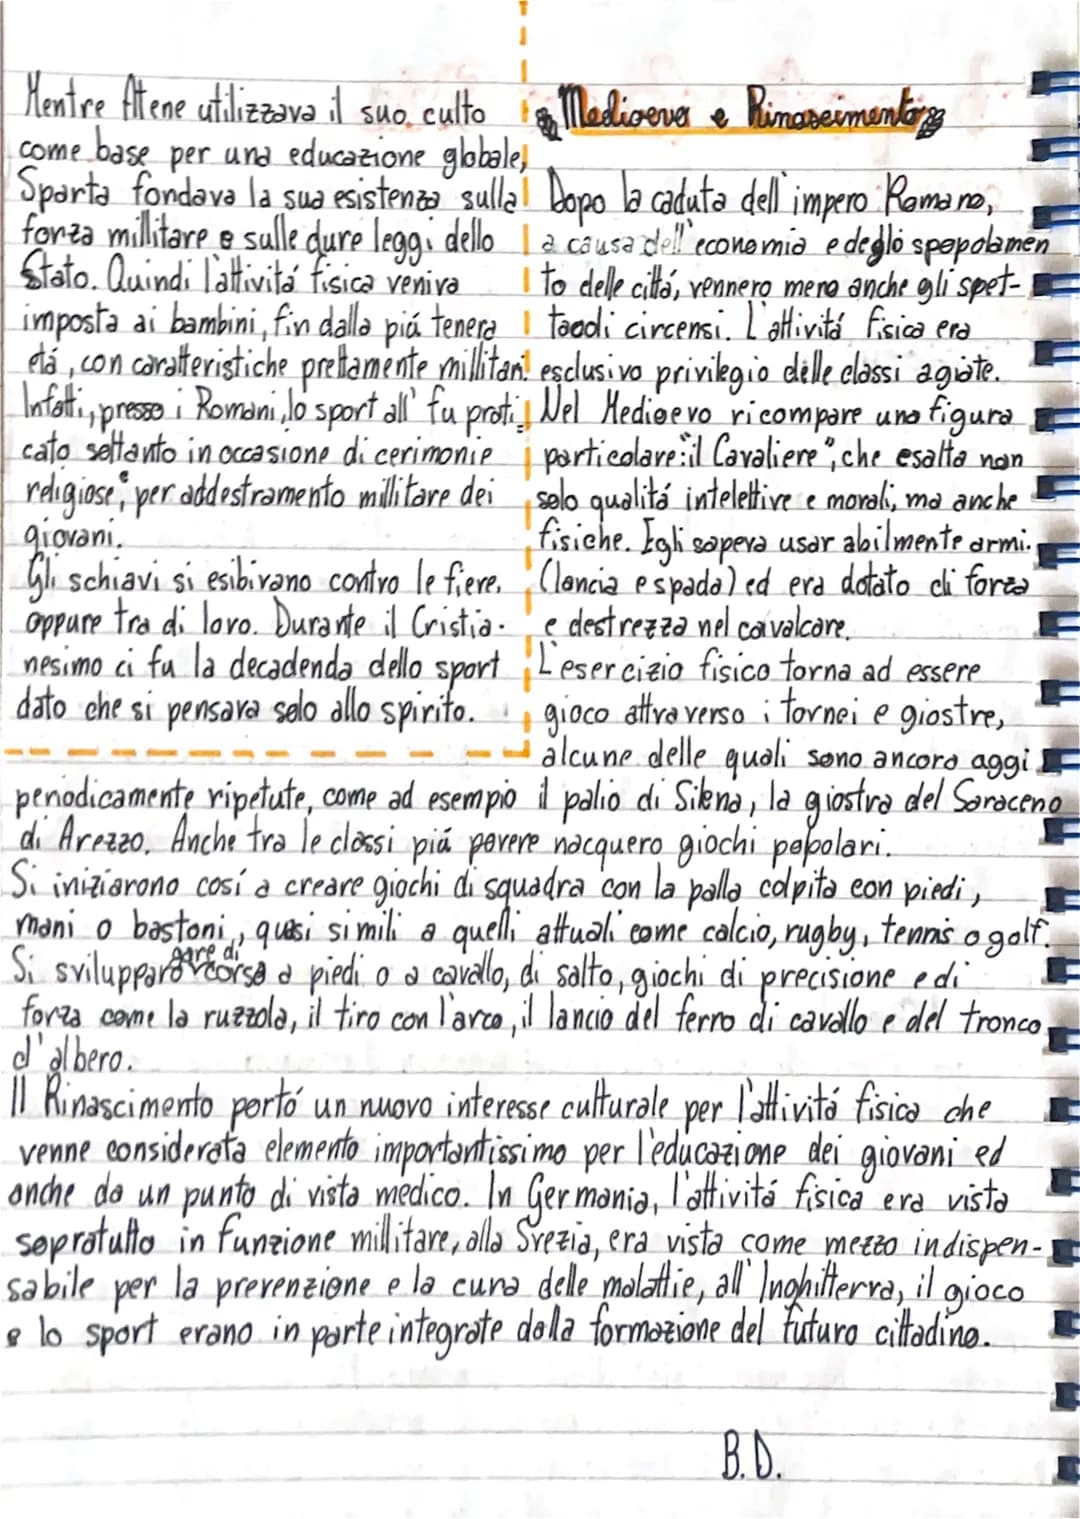 Mentre Atene utilizzava il suo culto
come base per una educazione globale,
Sparta fondava la sua esistenza sulla
forza millitare e sulle dure leggi dello
Stato. Quindi l'attivitá fisica veniva
imposta ai bambini, fin dalla piá tenera
etá, con caratteristiche prettamente millitari.
Infatti, presso i Romani, lo sport all' fu prati-
cato soltanto in occasione di cerimonie
religiose, per addestramento millitare dei
giovani.
Gli schiavi si esibivano contro le fiere,
oppure tra di loro. Durante il Cristia-
nesimo ci fu la decadenda dello sport
dato che si pensava solo allo spirito.
Medioevo e Rinascimento
Dopo la caduta dell'impero Romano,
a causa dell'economia e deglo spopolamen
to delle cittá, vennero meno anche gli spet-
tacoli circensi. L'attivitá fisica era
esclusivo privilegio delle classi agiate.
Nel Medioevo ricompare una figura
particolare: "il Cavaliere", che esalta non
solo qualitá intelettive e morali, ma anche
fisiche. Egli sapeva usar abilmente armi.
(lancia e spada) ed era dotato di forza
e destrezza nel cavalcare.
L'esercizio fisico torna ad essere
gioco attraverso i tornei e giostre,
alcune delle quali sono ancora aggi
periodicamente ripetute, come ad esempio il palio di Siena, la giostra del Saraceno
di Arezzo. Anche tra le classi piá povere nacquero giochi popolari.
Si iniziarono cosí a creare giochi di squadra con la palla colpita con piedi,
mani o bastoni, quasi simili a quelli attuali come calcio, rugby, tennis o golf.
Si svilupparo gare di corsa a piedi o a cavallo, di salto, giochi di precisione e di
forza come la ruzzola, il tiro con l'arco, il lancio del ferro di cavallo e del tronco
d'albero.
Il Rinascimento portó un nuovo interesse culturale per l'attivitá fisica che
venne considerata elemento importantissimo per l'educazione dei giovani ed
anche da un punto di vista medico. In Germania, l'attivitá fisica era vista
sopratutto in funzione millitare, alla Svezia, era vista come mezzo indispen-
sabile per la prevenzione e la cura delle malattie, all' Inghilterra, il gioco
e lo sport erano in parte integrate dalla formazione del futuro cittadino.
B.D.